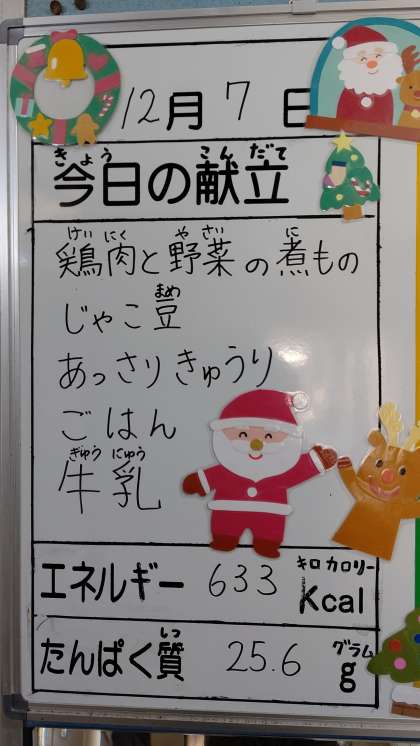 12月7日
きょう こんだて
今日の献立
けいにく やさい に
鶏肉と野菜の煮もの
まめ
じゃこ豆
あっさりきゅうり
ごはん
ぎゅうにゅう
牛乳
キロカロリー
エネルギー 633 Kcal
しつ グラム
たんぱく質 25.6 g